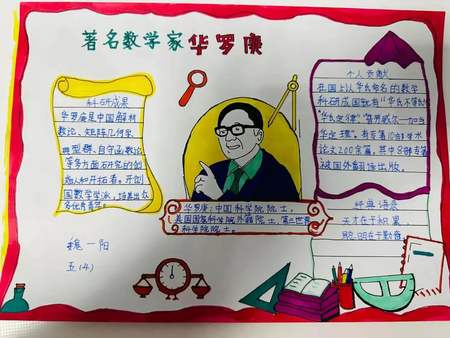 著名数学家华罗庚
科研成果
华罗庚是中国解析
数论、矩阵几何学、
典型群、自守函数论
等多方面研究的创
始人和开拓者。开创
国数学学派，培养出众
多优秀青年。
个人贡献
在国上以华氏命名的数学
科研成国就有“华氏不等式”
“华氏定律”“普劳威尔-加当
华定理”。有专著10部学术
论文200余篇，其中8部专著
被国外翻译出版。
经典语录
天才在于积累，
聪明在于勤奋。
华罗庚：中国科学院院士，
美国国家科学院外籍院士，第三世界
科学院院士。
魏一阳
五(4)